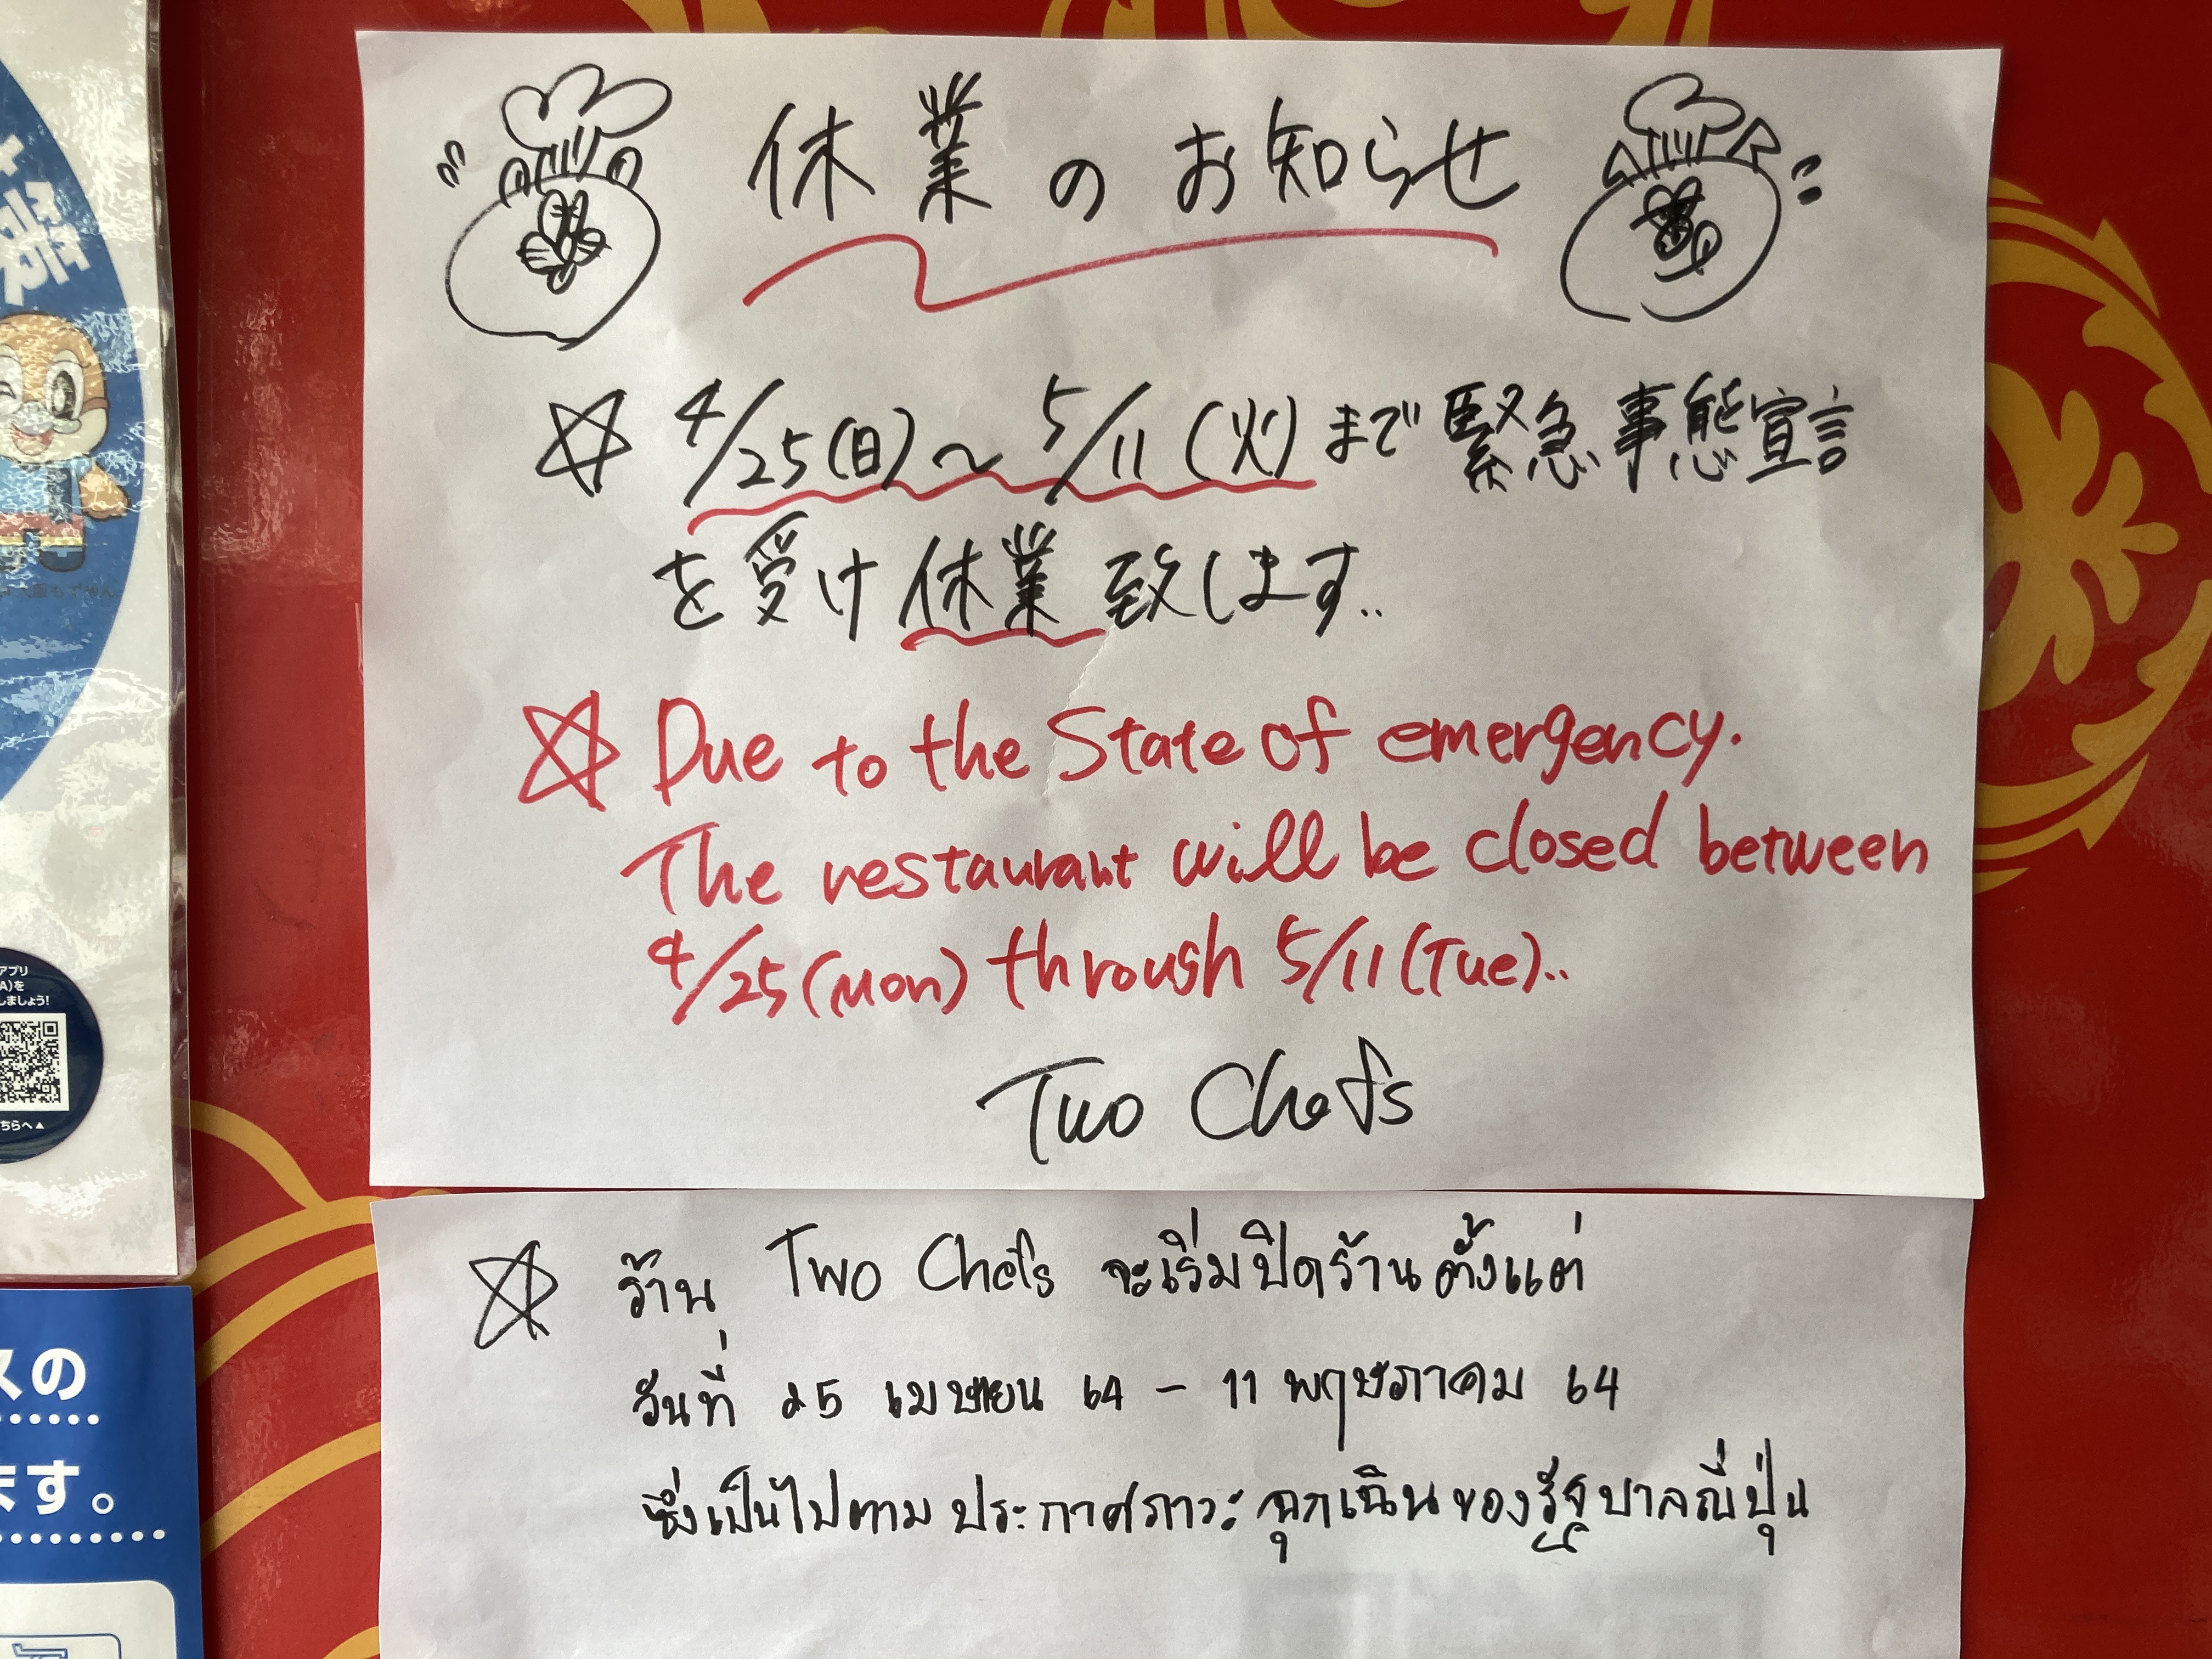 休業のお知らせ
☆ 4/25(日)〜5/11(火)まで緊急事態宣言
を受け休業致します..
☆ Due to the State of emergency.
The restaurant will be closed between
4/25(Mon) through 5/11(Tue)..
Two Chefs
☆ ร้าน Two Chefs จะเริ่มปิดร้านตั้งแต่
วันที่ 25 เมษายน 64 - 11 พฤษภาคม 64
ซึ่งเป็นไปตามประกาศภาวะฉุกเฉินของรัฐบาลญี่ปุ่น
アプリ
A)を
しましょう!
ちらへ▲
スの
ます。